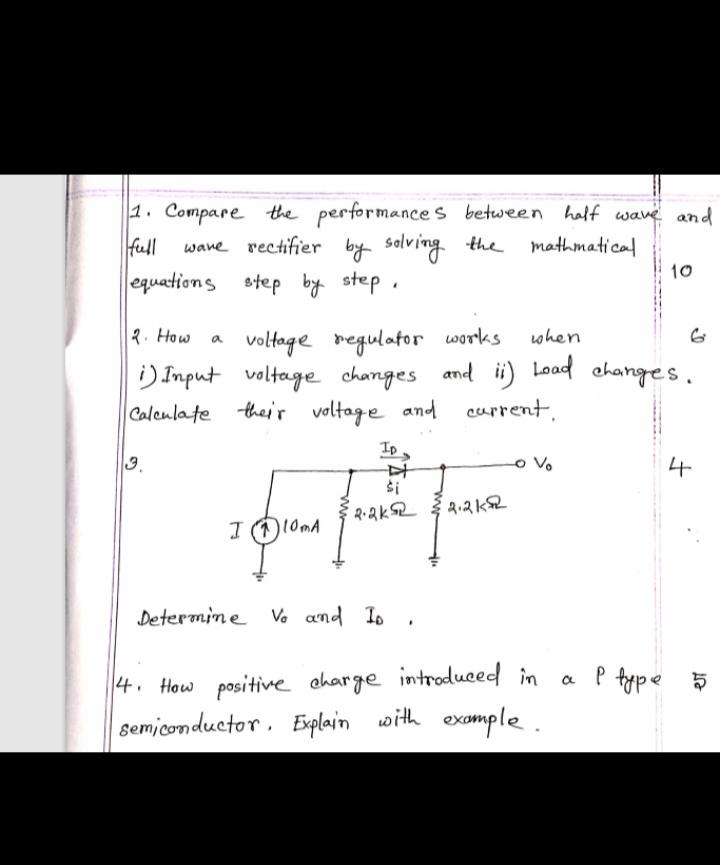 1. Compare the performances between half wave and
full wave rectifier by solving the mathmatical
equations step by step.
10
2. How a voltage regulator works when
6
i) Input voltage changes and ii) Load changes.
Calculate their voltage and current.
3.
4
ID
Si
Vo
I
10mA
2.2kΩ
2.2kΩ
Determine Vo and ID.
4. How positive charge introduced in a P type
5
semiconductor. Explain with example.